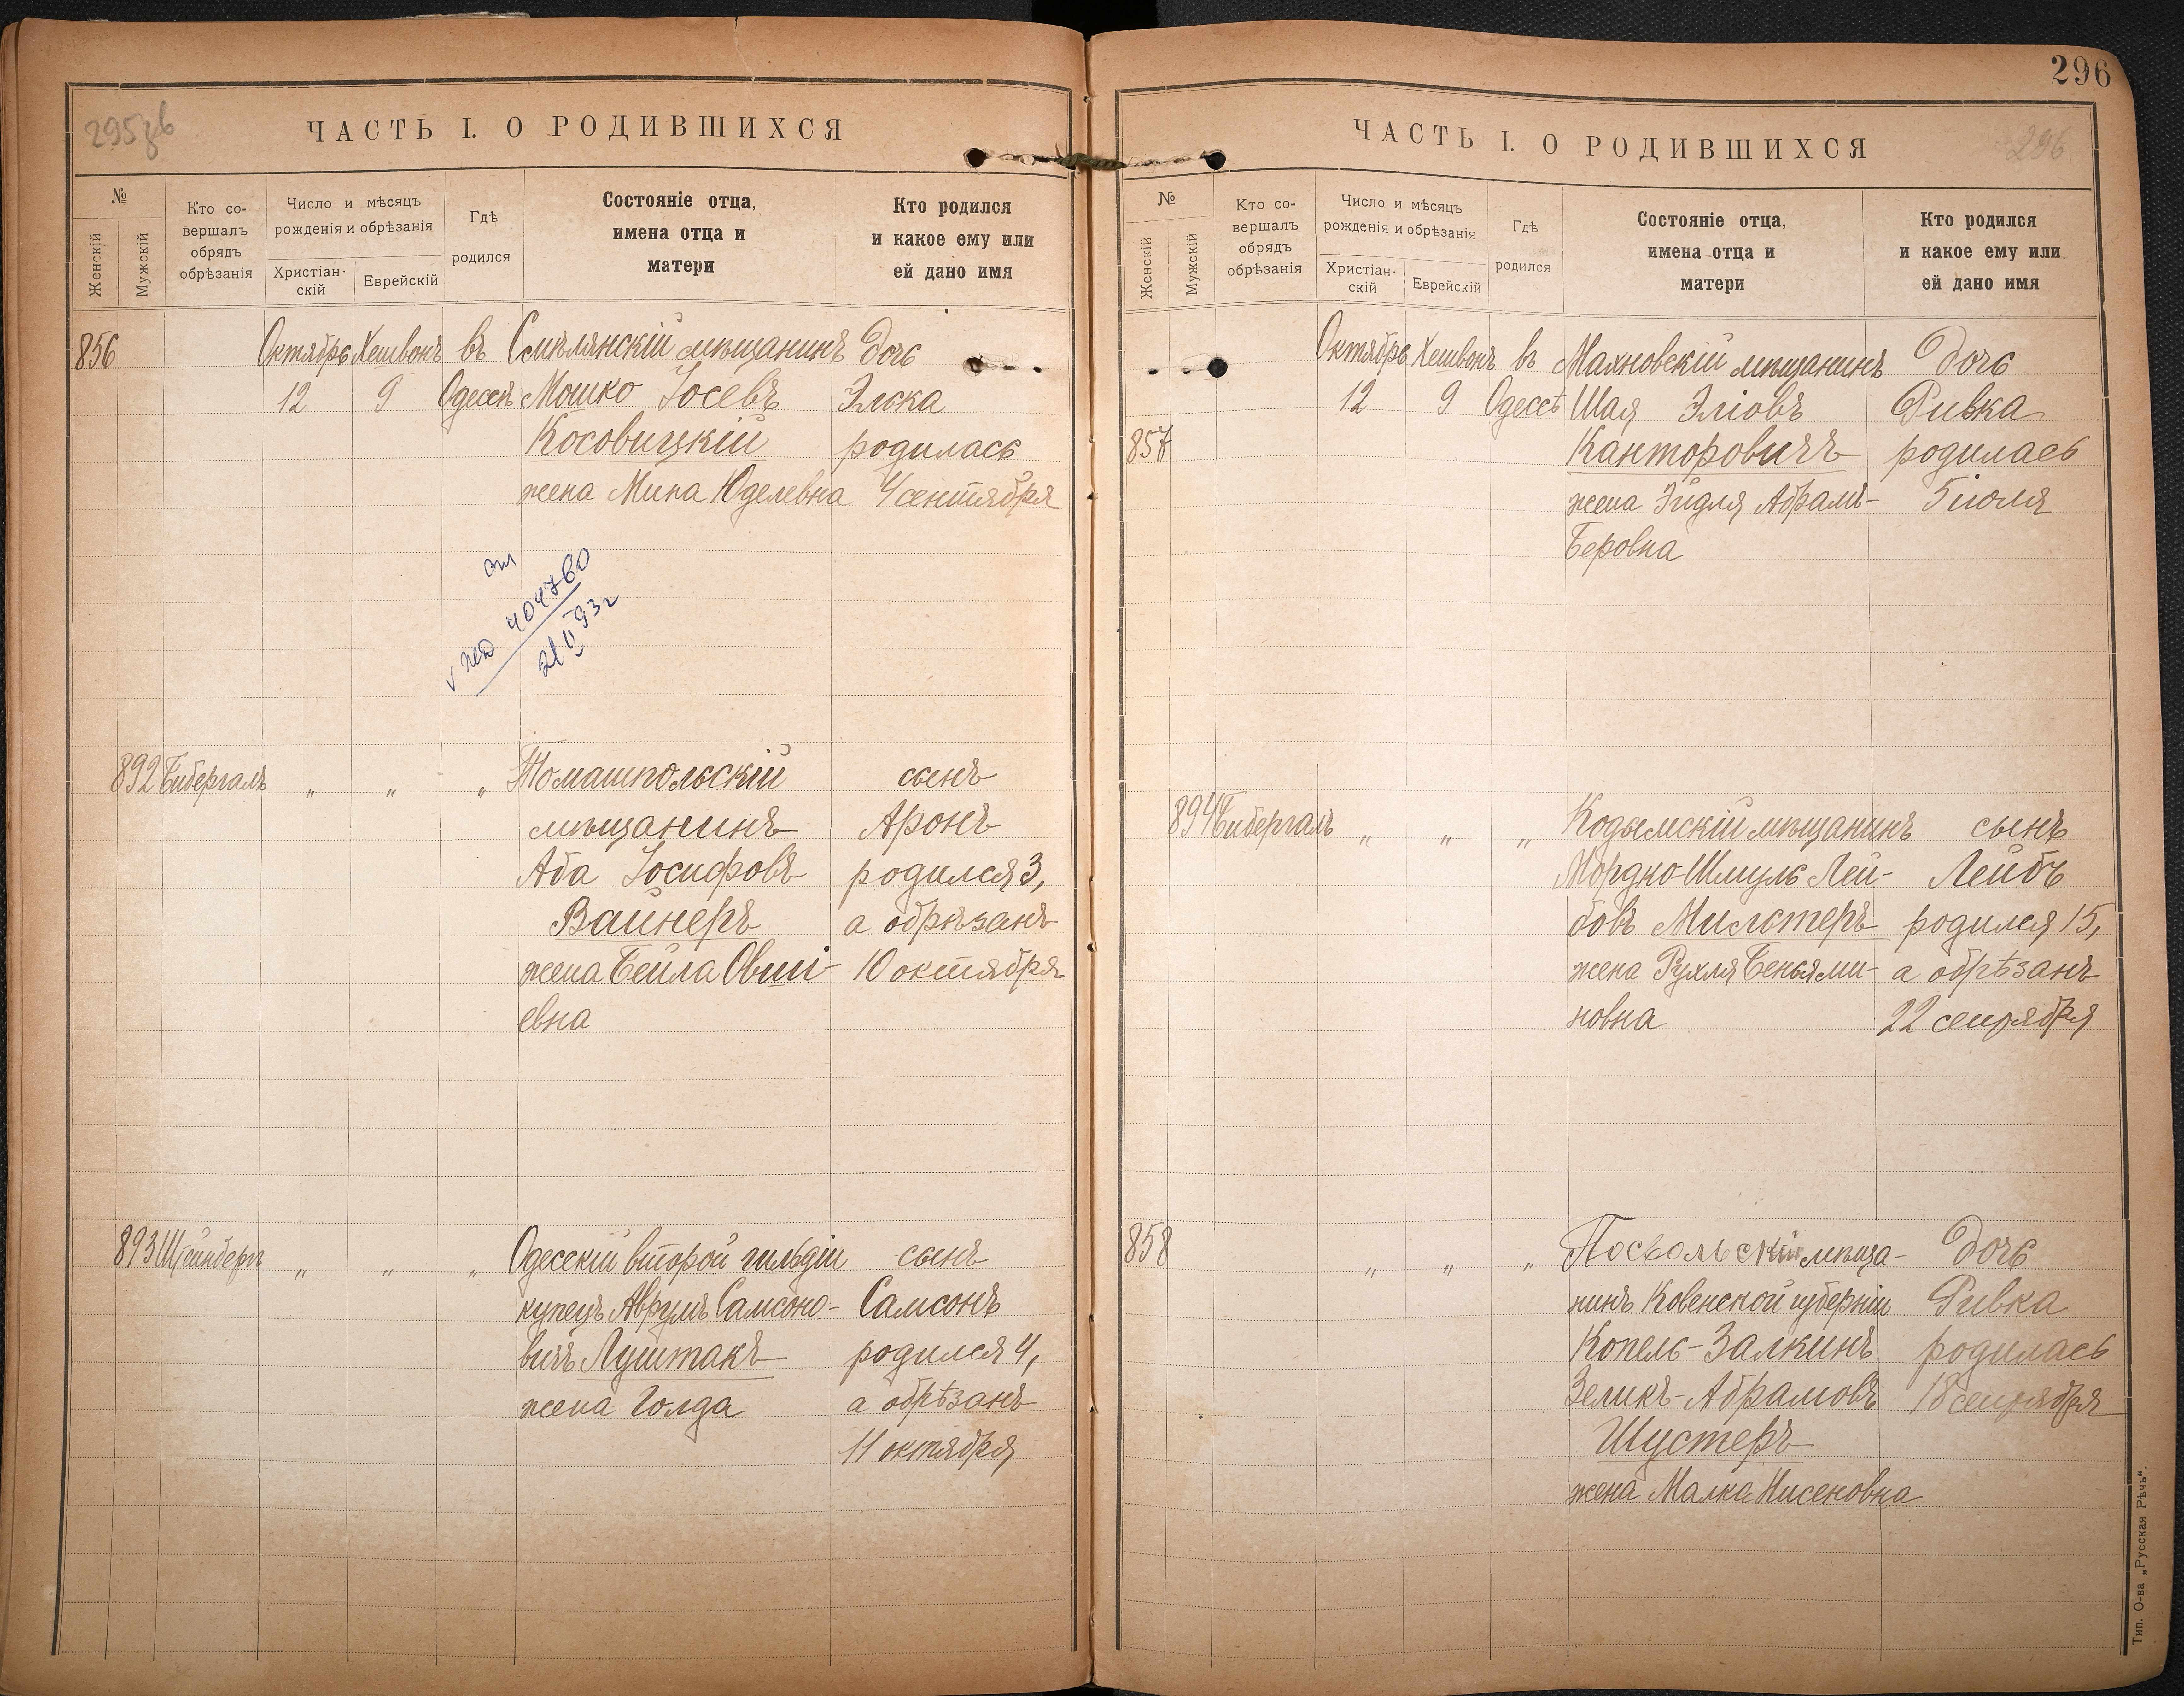 295зв
ЧАСТЬ I. О РОДИВШИХСЯ
№
Женскій
Мужскій
Кто со-
вершалъ
обрядъ
обрѣзанія
Число и мѣсяцъ
рожденія и обрѣзанія
Христіан-
скій
Еврейскій
Гдѣ
родился
Состояніе отца,
имена отца и
матери
Кто родился
и какое ему или
ей дано имя
856 Октябрь Хешвонъ въ Смѣлянскій мѣщанинъ Дочь
12 9 Одессѣ Мошко Іосевъ Элька
Косовицкій родилась
жена Мина Юделевна 4 сентября
404760
21 II 93г
892 Бибергалъ " " " Томашпольскій сынъ
мѣщанинъ Аронъ
Аба Іосифовъ родился 3,
Вайнеръ а обрѣзанъ
жена Бейла Овші- 10 октября
евна
893 Штейнбергъ " " " Одесскій второй гильдіи сынъ
купецъ Аврумъ Самсоно- Самсонъ
вичъ Луштакъ родился 4,
жена Голда а обрѣзанъ
11 октября
296
ЧАСТЬ I. О РОДИВШИХСЯ
296
№
Женскій
Мужскій
Кто со-
вершалъ
обрядъ
обрѣзанія
Число и мѣсяцъ
рожденія и обрѣзанія
Христіан-
скій
Еврейскій
Гдѣ
родился
Состояніе отца,
имена отца и
матери
Кто родился
и какое ему или
ей дано имя
Октябрь Хешвонъ въ Махновскій мѣщанинъ Дочь
12 9 Одессѣ Шая Эліовъ Ривка
857 Канторовичъ родилась
жена Эйдля Абрамъ- 5 іюля
Беровна
894 Бибергалъ " " " Кодымскій мѣщанинъ сынъ
Мордко-Шмуль Лей- Лейбъ
бовъ Мильтеръ родился 15,
жена Рухля Беньями- а обрѣзанъ
новна 22 сентября
858 " " " Посвольскій мѣща- Дочь
нинъ Ковенской губерніи Ривка
Копель-Залкинъ родилась
Зеликъ-Абрамовъ 18 сентября
Шустеръ
жена Малка Нисеновна
Тип. О-ва „Русская Рѣчь“.